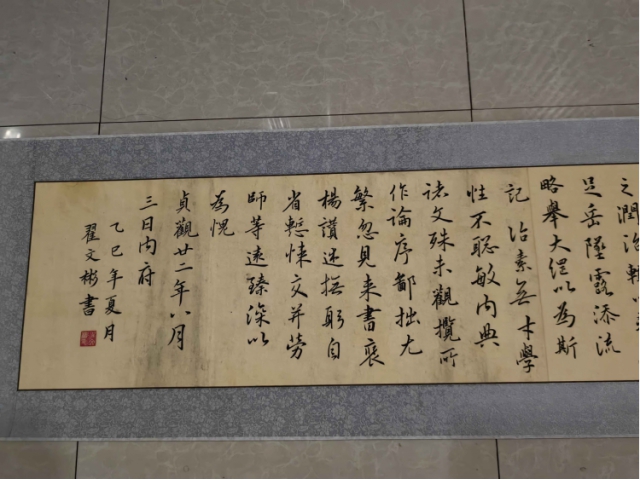 之潤治輒以輕塵
足岳墜露添流
略舉大綱以為斯
記 治素無才學
性不聰敏內典
諸文殊未觀攬所
作論序鄙拙尤
繁忽見來書褒
楊讚述撫躬自
省慙悚交并勞
師等遠臻深以
為愧
貞觀廿二年八月
三日內府
乙巳年夏月
翟文彬書